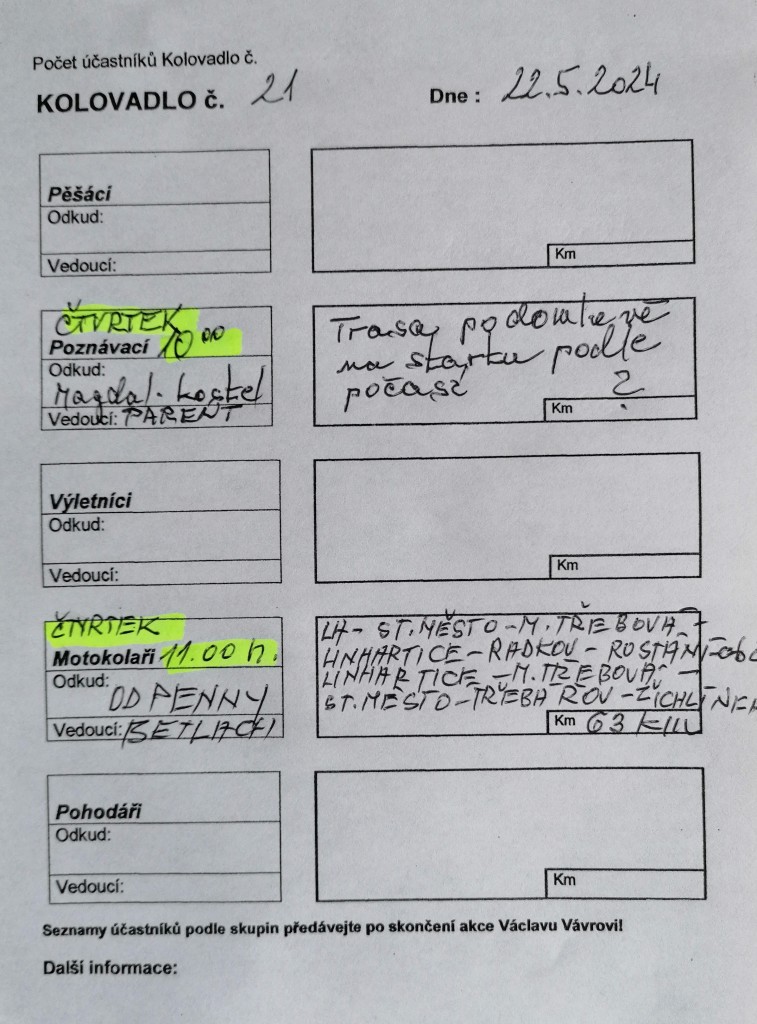 Počet účastníků Kolovadlo č.
KOLOVADLO č. 21 Dne : 22.5.2024
Pěšáci
Odkud:
Vedoucí:
Km
ČTVRTEK
Poznávací 10 00
Odkud:
Magdal. kostel
Vedoucí: PARENT
Trasa podomluvě
na startu podle
počasí ?
Km
Výletníci
Odkud:
Vedoucí:
Km
ČTVRTEK
Motokolaři 11.00 h.
Odkud:
OD PENNY
Vedoucí: BETLACH
LA- ST.MĚSTO-M.TŘEBOVÁ-
LINHARTICE-RADKOV-ROSTÁNÍ-
LINHARTICE-M.TŘEBOVÁ-
ST.MĚSTO-TŘEBAŘOV-ŽICHLÍNEK
Km 63 km
Pohodáři
Odkud:
Vedoucí:
Km
Seznamy účastníků podle skupin předávejte po skončení akce Václavu Vávrovi!
Další informace: